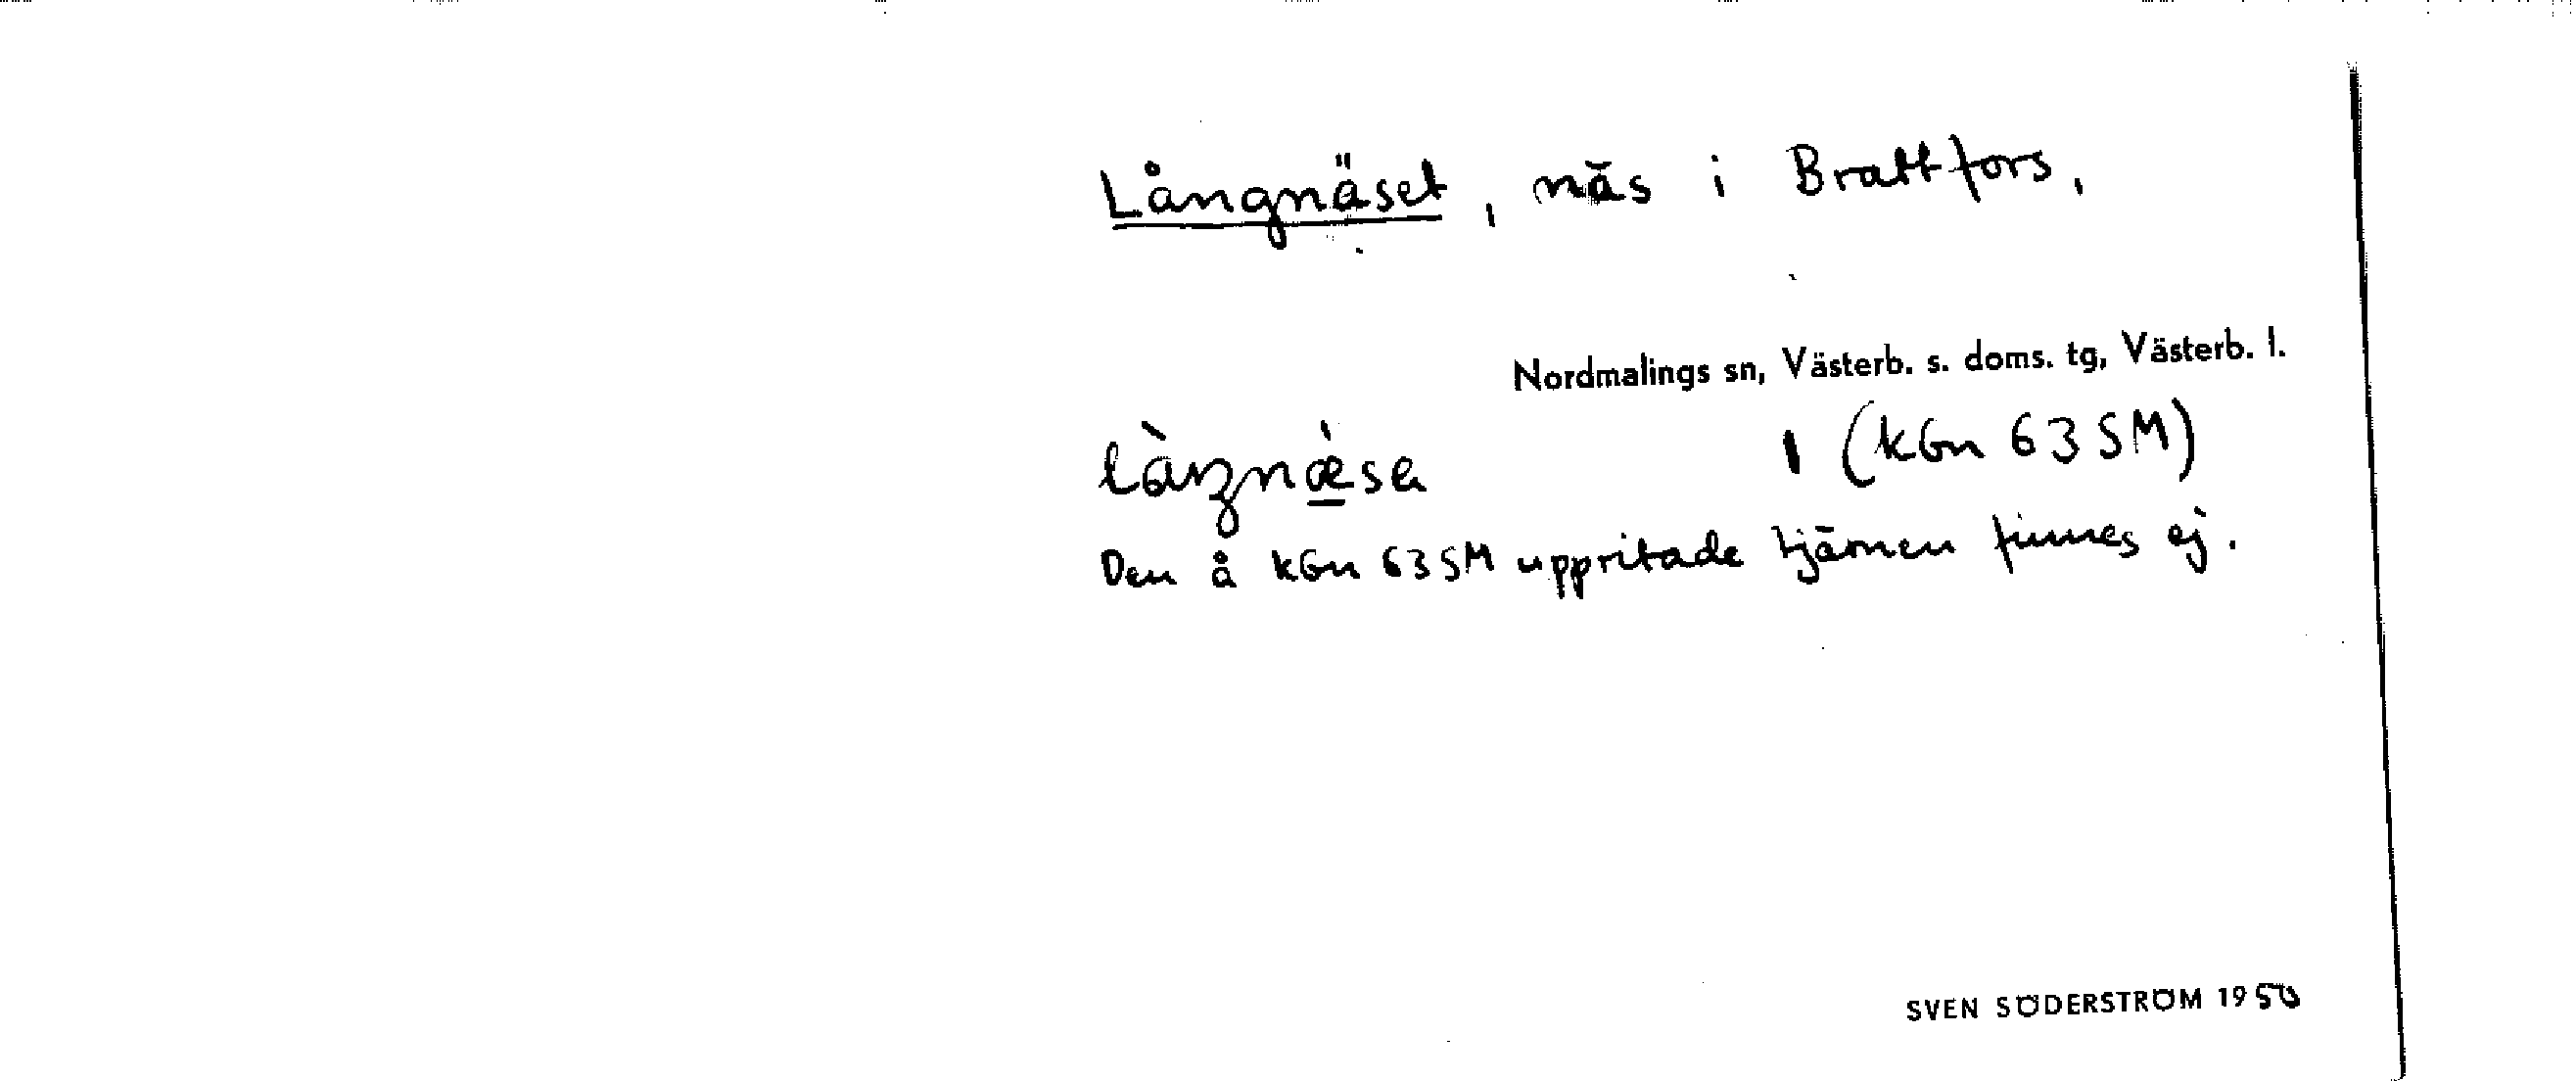 Långnäset, näs i Brattfors,
Nordmalings sn, Västerb. s. doms. tg, Västerb. l.
1 (kGn 63 SM)
Den å kGn 63 SM uppritade tjärnen finnes ej.
SVEN SÖDERSTRÖM 1950